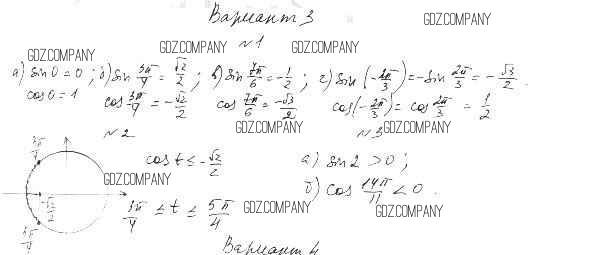 Вариант 3
GDZ.COMPANY
GDZ.COMPANY GDZ.COMPANY GDZ.COMPANY
№1
а) sin 0 = 0; б) sin 3π/4 = √2/2; в) sin 7π/6 = -1/2; г) sin(-2π/3) = -sin 2π/3 = -√3/2.
cos 0 = 1 cos 3π/4 = -√2/2 cos 7π/6 = -√3/2 cos(-2π/3) = cos 2π/3 = 1/2
GDZ.COMPANY GDZ.COMPANY
№2 №3
3π/4
cos t ≤ -√2/2 а) sin 2 > 0;
GDZ.COMPANY
б) cos 14π/11 < 0.
-√2/2
3π/4 ≤ t ≤ 5π/4 GDZ.COMPANY GDZ.COMPANY
Вариант 4